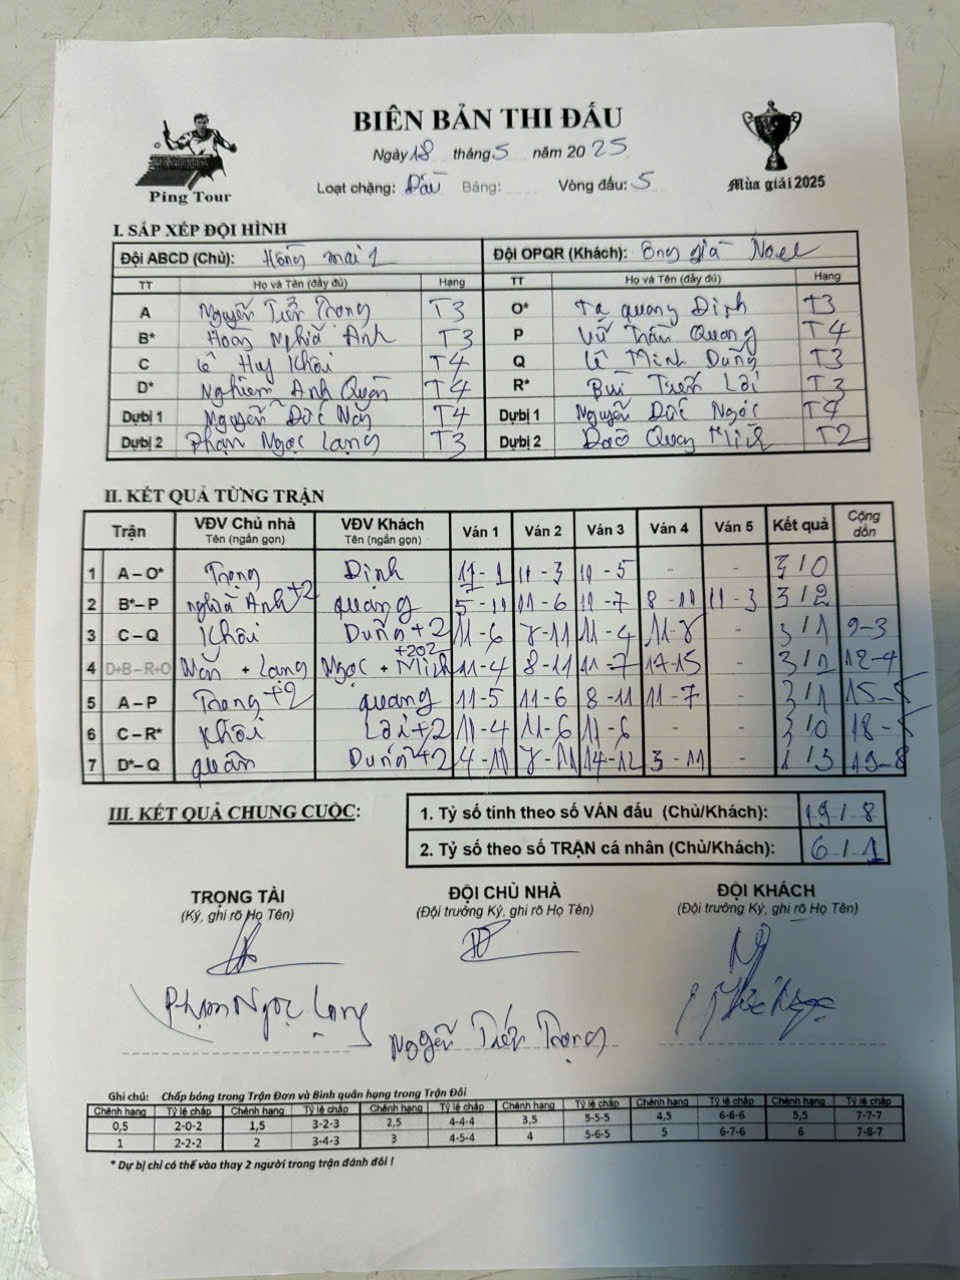 BIÊN BẢN THI ĐẤU
Ngày 18 tháng 5 năm 20 25
Ping Tour
Loạt chặng: Đấu Bảng: Vòng đấu: 5
Mùa giải 2025
I. SẮP XẾP ĐỘI HÌNH
Đội ABCD (Chủ): Hồng mai 1 Đội OPQR (Khách): Ông già Noel
TT Họ và Tên (đầy đủ) Hạng TT Họ và Tên (đầy đủ) Hạng
A Nguyễn Tiến Trọng T3 O* Tạ quang Định T3
B* Hoàng Nghĩa Anh T3 P Vũ Trần Quang T4
C Lê Huy Khôi T4 Q Lê Minh Dũng T3
D* Nghiêm Anh Quân T4 R* Bùi Tiến Lài T3
Dự bị 1 Nguyễn Đức Văn T4 Dự bị 1 Nguyễn Đức Ngọc T4
Dự bị 2 Phạm Ngọc Lạng T3 Dự bị 2 Đào Quang Minh T2
II. KẾT QUẢ TỪNG TRẬN
Trận VĐV Chủ nhà Tên (ngắn gọn) VĐV Khách Tên (ngắn gọn) Ván 1 Ván 2 Ván 3 Ván 4 Ván 5 Kết quả Cộng dồn
1 A – O* Trọng Định 11 - 1 11 - 3 11 - 5 - - 3 / 0
2 B* – P nghĩa Anh +2 quang 5 - 11 11 - 6 11 - 7 8 - 11 11 - 3 3 / 2
3 C – Q Khôi Dũng +2 11 - 6 8 - 11 11 - 4 11 - 8 - 3 / 1 9 - 3
4 D+B – R+O Văn + Lạng Ngọc + Minh +202 11 - 4 8 - 11 11 - 7 17 - 15 - 3 / 1 12 - 4
5 A – P Trọng +2 quang 11 - 5 11 - 6 8 - 11 11 - 7 - 3 / 1 15 - 5
6 C – R* Khôi Lài +2 11 - 4 11 - 6 11 - 6 - - 3 / 0 18 - 5
7 D* – Q quân Dũng +2 4 - 11 8 - 11 14 - 12 3 - 11 - 1 / 3 19 - 8
III. KẾT QUẢ CHUNG CUỘC:
1. Tỷ số tính theo số VÁN đấu (Chủ/Khách): 19 / 8
2. Tỷ số theo số TRẬN cá nhân (Chủ/Khách): 6 / 1
TRỌNG TÀI ĐỘI CHỦ NHÀ ĐỘI KHÁCH
(Ký, ghi rõ Họ Tên) (Đội trưởng Ký, ghi rõ Họ Tên) (Đội trưởng Ký, ghi rõ Họ Tên)
Phạm Ngọc Lạng
Nguyễn Tiến Trọng
Ghi chú: Chấp bóng trong Trận Đơn và Bình quân hạng trong Trận Đôi
Chênh hạng Tỷ lệ chấp Chênh hạng Tỷ lệ chấp Chênh hạng Tỷ lệ chấp Chênh hạng Tỷ lệ chấp Chênh hạng Tỷ lệ chấp Chênh hạng Tỷ lệ chấp
0,5 2-0-2 1,5 3-2-3 2,5 4-4-4 3,5 5-5-5 4,5 6-6-6 5,5 7-7-7
1 2-2-2 2 3-4-3 3 4-5-4 4 5-6-5 5 6-7-6 6 7-8-7
* Dự bị chỉ có thể vào thay 2 người trong trận đánh đôi !